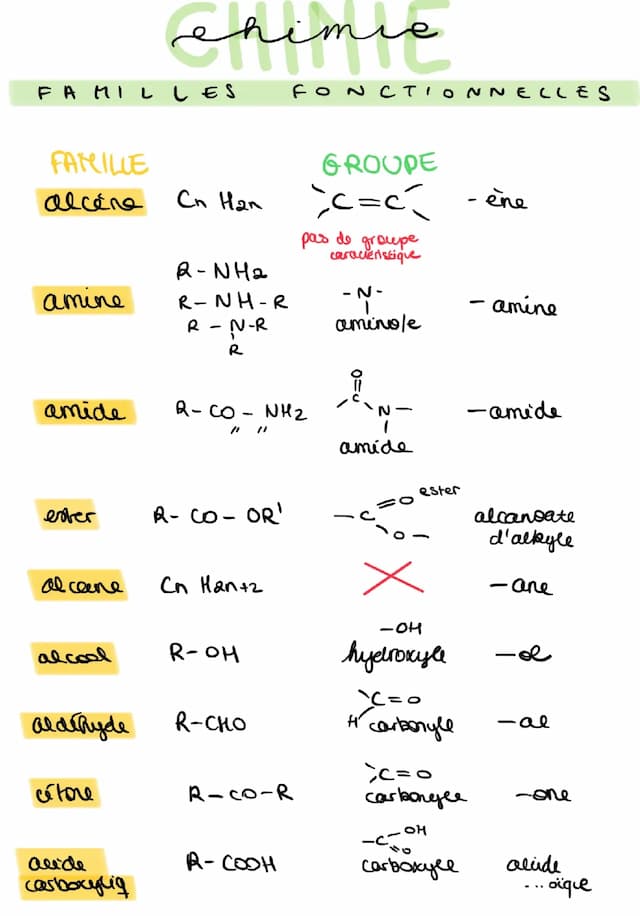 CHIMIE
chimie
FAMILLES FONCTIONNELLES
FAMILLE GROUPE
alcène Cn H2n C=C -ène
pas de groupe
caractéristique
R-NH2
amine R-NH-R -N- -amine
R-N-R aminole
R
O
amide R-CO-NH2 C N- -amide
" " amide
ester
ester R-CO-OR' -C=O alcanoate
O- d'alkyle
alcane Cn H2n+2 -ane
-OH
alcool R-OH hydroxyle -ol
C=O
aldéhyde R-CHO H carbonyle -al
C=O
cétone R-CO-R carbonyle -one
-C-OH
O
acide R-COOH carboxyle acide
carboxyliq ...oïque